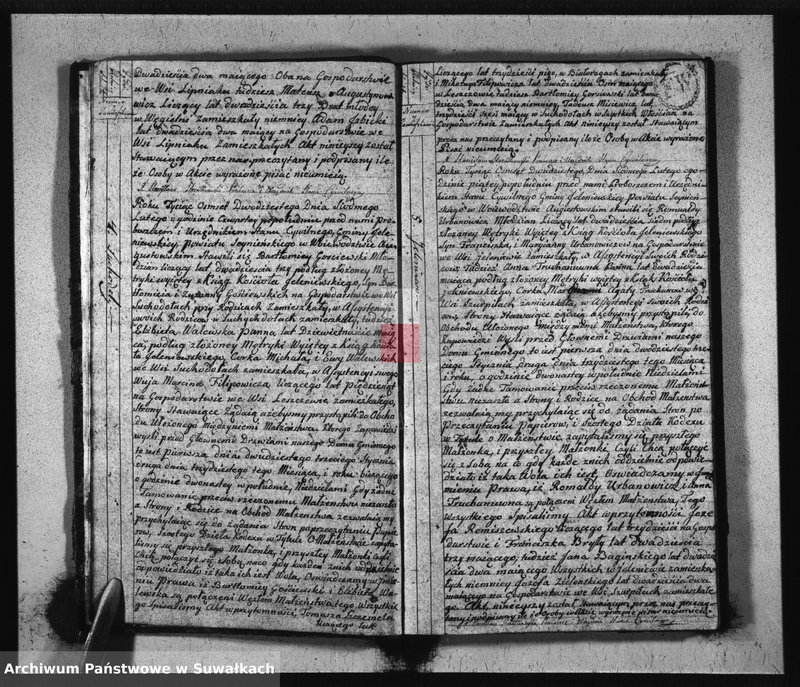 Dwadzieścia dwa maiącego Obana Gospodarstwie
we Wsi Lipniaku tudzież Mateusz Augustyno
wicz Liczący lat dwadzieścia trzy
zamieszkały niemniey Adam
lat dwadzieścia dwa maiący na Gospodarstwie we
Wsi Lipniaku Zamieszkałych. Akt ninieyszy został
Stawaiącym przez nas przeczytany i podpisany ile
że Osoby w Akcie wyrażone pisać nieumieią.
Roku Tysiąc Osmset Dwudziestego Dnia Siódmego
Lutego o godzinie Czwartey popołudniu przed nami Pro
boszczem i Urzędnikiem Stanu Cywilnego, Gminy Jele
niewskiey Powiatu Seyneńskiego w Woiewództwie Au
gustowskim Stawili się Bartłomiey Gościewski Mło
dzian liczący lat dwadzieścia trzy podług złożoney Me
tryki wyiętey z Xiąg Kościoła Jeleniewskiego, Syn Bar
tłomieia i Zuzanny Gościewskich na Gospodarstwie we Wsi
Suchodołach przy Rodzicach Zamieszkały, w Assystencyi
swoich Rodziców, w Suchodołach zamieszkałych, tudzież
Elżbieta Walewska Panna lat Dziewiętnaście maią
ca podług złożoney Metryki Wyiętey z Xiąg Kościo
ła Jeleniewskiego, Corka Michała i Ewy Walewskich
we Wsi Suchodołach zamieszkała, w Assystencyi swego
Wuia Marcina Filipowicza, Liczącego lat Piędziesiąt
na Gospodarstwie we Wsi Leszczewie zamieszkałego,
Strony Stawaiące Żądaią ażebyśmy przystąpili do Obcho
du Ułożonego międzyniemi Małżeństwa, którego Zapowiedzi
wyszły przed Głównemi Drzwiami naszego Domu Gminnego
to iest Pierwsza dnia dwudziestego trzeciego Stycznia
druga dnia trzydziestego tego Miesiąca i roku bieżącego
o godzinie dwunastey w południe, Niedzielami Gdy żadne
Tamowanie przeciw rzeczonemu Małżeństwu niezaszło
a Strony i Rodzice na Obchod Małżeństwa zezwalaią my
przychylaiąc się do żądania Stron po przeczytaniu Papie
rów, i Szóstego Działu Kodexu w Tytule O Małżeństwie, zapyta
liśmy się przyszłego Małżonka, i przyszłey Małżonki czyli
Chcą połączyć się z sobą, na co gdy każde z nich oddzielnie
odpowiedziało iż taka ich iest Wola, Oświadczamy w Imie
niu Prawa iż Bartłomiey Gościewski i Elżbieta Wa
lewska są połączeni Węzłem Małżeństwa, tego Wszystkie
go Spisaliśmy Akt w przytomności, Tomasza
liczącego lat
4. Suchodoły
Liczącego lat trzydzieści pięć, w Białorogach zamieszkały
i Mikołaia Filipowicza lat Dwadzieścia Ośm maiącego
w Leszczewie tudzież Bartłomiey Gościewski lat Dwa
dzieścia dwa maiący niemniey Tadeusz Misiewicz lat
trzydzieści Sześć maiący w Suchodołach wszystkich Włościan na
Gospodarstwie Zamieszkałych Akt ninieyszy został Stawaiącym
przez nas przeczytany i podpisany ile że Osoby w Akcie wyrażone
Pisać nieumieią.
Roku Tysiąc Osmset Dwudziestego, Dnia Siódmego Lutego o go
dzinie piątey popołudniu przed nami Proboszczem i Urzędni
kiem Stanu Cywilnego Gminy Jeleniewskiey Powiatu Seyneń
skiego w Woiewództwie Augustowskim stawili się Romuald
Urbanowicz Młodzian Liczący lat dwadzieścia Siedm podług
złożoney Metryki Wyiętey z Xiąg Kościoła Jeleniewskiego
Syn Franciszka, i Maryanny Urbanowiczow na Gospodarstwie
we Wsi Jeleniewie zamieszkały, w Assystencyi Swoich Rodzi
cow, Tudzież Anna Truchanowna Panna lat dwadzieścia
maiąca podług złożoney Metryki wyiętey z Xiąg Kościoła
Jeleniewskiego, Corka Agaty Truchanow we
Wsi Szurpiłach zamieszkała, w Assystencyi Swoich Rodzi
ców, Strony Stawaiące żądaią ażebyśmy przystąpili do
Obchodu Ułożonego między niemi Małżeństwa, którego
Zapowiedzi Wyszły przed Głównemi Drzwiami naszego
Domu Gminnego to iest pierwsza dnia dwudziestego trze
ciego Stycznia druga dnia trzydziestego tego Miesiąca
i roku, o godzinie dwunastey w południe Niedzielami
Gdy żadne Tamowanie przeciw rzeczonemu Małżeń
stwu niezaszło a Strony i Rodzice na Obchod Małżeństwa
zezwalaią, my przychylaiąc się do żądania Stron po
Przeczytaniu Papierow, i Szóstego Działu Kodexu
w Tytule o Małżeństwie, zapytaliśmy się przyszłego
Małżonka, i przyszłey Małżonki Czyli Chcą połączyć
się z Sobą, na co gdy każde z nich oddzielnie odpowie
działo iż taka Wola ich iest Oświadczamy w Im
ieniu Prawa, iż Romuald Urbanowicz i Anna
Truchanowna są połączeni Węzłem Małżeństwa, Tego
wszystkiego Spisaliśmy Akt w przytomności Joze
fa Romiszewskiego liczącego lat trzydzieści na Gospo
darstwie i Franciszka Bryły lat Dwadzieścia
trzy maiącego, tudzież Jana Baginskiego lat dwadzie
ścia dwa maiącego Wszystkich w Jeleniewie zamieszka
łych niemniey Jozefa Zielenkiego lat dwadzieścia dwa
maiącego na Gospodarstwie we Wsi Szurpiłach zamieszkałe
go. Akt ninieyszy został Stawaiącym przez nas przeczy
tany i podpisany ile że Osoby w Akcie wyrażone pisać nieumieią
5. Jeleniewo
Archiwum Państwowe w Suwałkach